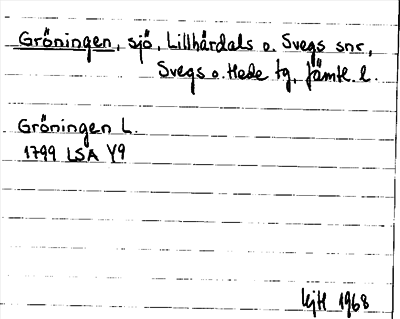 Gröningen, sjö, Lillhärdals o. Svegs snr,
Svegs o. Hede tg, Jämtl. l.
Gröningen L.
1799 LSA Y9
1968